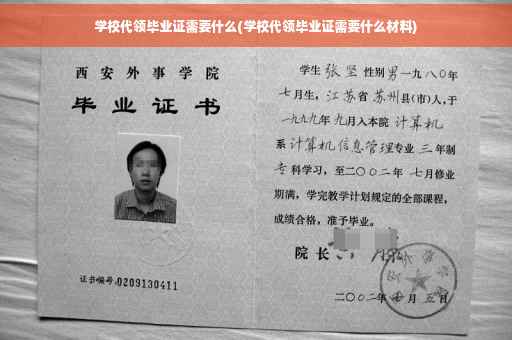 学校代领毕业证需要什么(学校代领毕业证需要什么材料)
西安外事学院
毕业证书
证书编号:0209130411
学生 张坚 性别 男 一九八〇年
七月生，江苏省 苏州县(市)人，于
一九九九年 九月入本院 计算机
系 计算机信息管理专业 三 年制
专 科学习，至二〇〇二年 七月修业
期满，学完教学计划规定的全部课程，
成绩合格，准予毕业。
院 长
二〇〇二年 月 五日